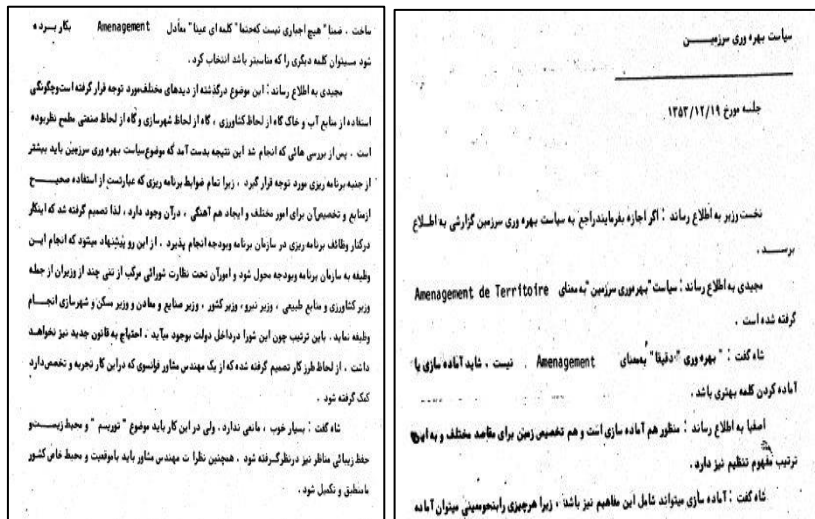 سیاست بهره وری سرزمیــــن
جلسه مورخ ۱۳۵۳/۱۲/۱۹
نخست وزیر به اطلاع رساند : اگر اجازه بفرمایندراجع به سیاست بهره وری سرزمین گزارشی به اطــلاع
برســـد .
مجیدی به اطلاع رساند : سیاست "بهره‌وری سرزمین "به‌معنای Amenagement de Territoire
گرفته شده است .
شاه گفت : " بهره وری "دقیقا" به‌معنای Amenagement نیست . شاید آماده سازی یا
آماده کردن کلمه بهتری باشد .
اصفیا به اطلاع رساند : منظور هم آماده سازی است و هم تخصیص زمین برای مقاصد مختلف و به این
ترتیب مفهوم تنظیم نیز دارد .
شاه گفت : آماده سازی میتواند شامل این مفاهیم نیز باشد ، زیرا هرچیزی رابنحومعینی میتوان آماده
ساخت . ضمنا" هیچ اجباری نیست که‌حتما" کلمه ای عینا" معادل Amenagement بکار بــرده
شود میتوان کلمه دیگری را که مناسبتر باشد انتخاب کرد .
مجیدی به اطلاع رساند : این موضوع درگذشته از دیدهای مختلف‌مورد توجه قرار گرفته است‌وچگونگی
استفاده از منابع آب و خاک گاه از لحاظ کشاورزی ، گاه از لحاظ شهرسازی و گاه از لحاظ صنعتی مطمح نظربوده
است . پس از بررسی هائی که انجام شد این نتیجه بدست آمد که موضوع‌سیاست بهره وری سرزمین باید بیشتر
از جنبه برنامه ریزی مورد توجه قرار گیرد . زیرا تمام ضوابط برنامه ریزی که عبارتست از استفاده صحیـــح
ازمنابع و تخصیص‌آن برای امور مختلف و ایجاد هم آهنگی ، درآن وجود دارد ، لذا تصمیم گرفته شد که اینکار
درکنار وظائف برنامه ریزی در سازمان برنامه وبودجه انجام پذیرد . از این رو پیشنهاد میشود که انجام ایــن
وظیفه به سازمان برنامه وبودجه محول شود و امورآن تحت نظارت شورائی مرکب از تنی چند از وزیران از جمله
وزیر کشاورزی و منابع طبیعی ، وزیر نیرو ، وزیر کشور ، وزیر صنایع و معادن و وزیر مسکن و شهرسازی انجــام
وظیفه نماید . باین ترتیب چون این شورا درداخل دولت بوجود میآید . احتیاج به قانون جدید نیز نخواهــد
داشت . از لحاظ طرز کار تصمیم گرفته شده که از یک مهندس مشاور فرانسوی که دراین کار تجربه و تخصص‌دارد
کمک گرفته شود .
شاه گفت : بسیار خوب ، مانعی ندارد . ولی در این کار باید موضوع " توریسم " و محیط زیست‌و
حفظ زیبائی مناظر نیز درنظرگــرفته شود . همچنین نظرا ت مهندس مشاور باید باموقعیت و محیط خاص کشور
ما‌منطبق و تکمیل شود .